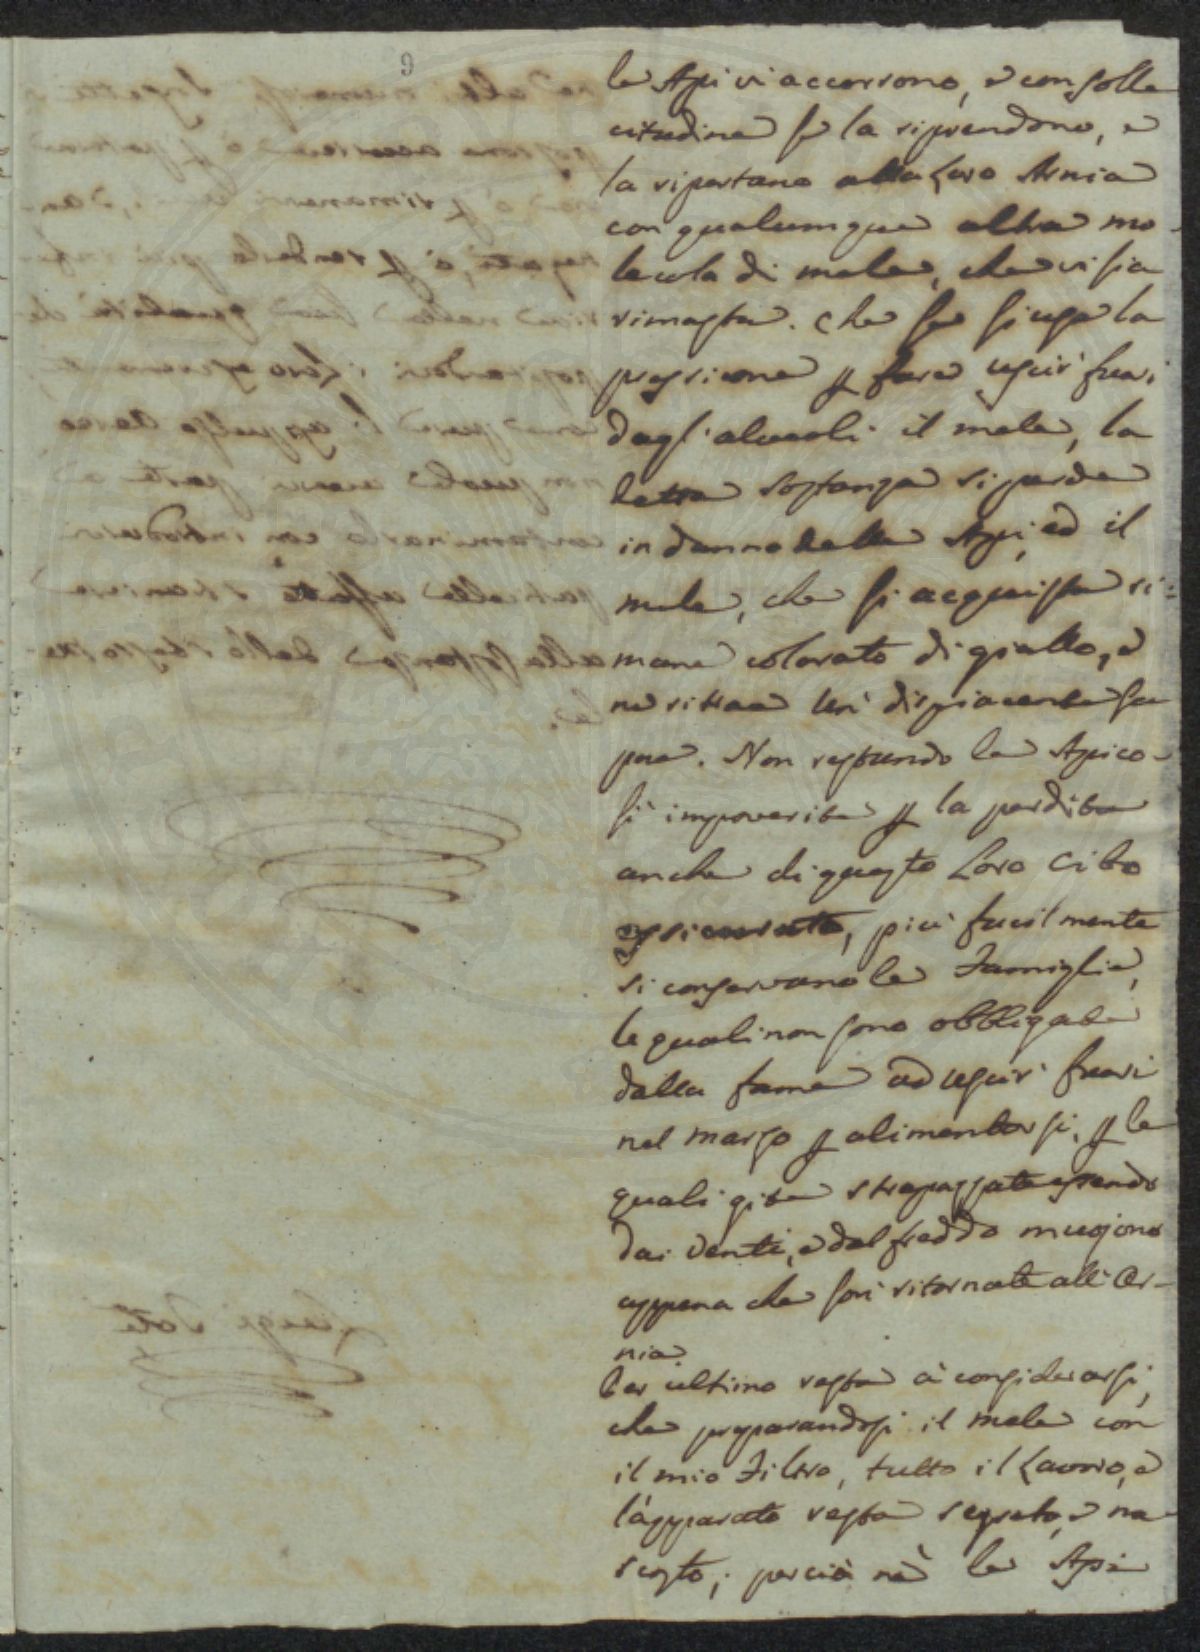 9
le Api vi accorrono, e con solle
citudine se la riprendono, e
la riportano alla Loro Arnia
con qualumque altra mo-
lecola di mele, che vi sia
rimasta. Che se si usa la
pressione p fare uscir fuori
dagl'alveoli il mele, la
detta sostanza si perde
in danno delle Api, ed il
mele, che si acquista ri=
mane colorato di giallo, e
ne ritrae un dispiacente sa
pore. Non restando le Api co-
si impoverite p la perdita
anche di questo Loro Cibo
più facilmente
si conservano le Famiglie,
le quali non sono obbligate
dalla fame ad uscir fuori
nel marzo p alimentarsi, p le
quali gite strapazzate essendo
dai venti, e dal freddo muojono
appena che son ritornate all'Ar-
nia.
Per ultimo resta a considerarsi,
che preparandosi il mele con
il mio Filtro, tutto il Lavoro, e
l'apparato resta segreto, e na-
scosto; perciò nè le Api